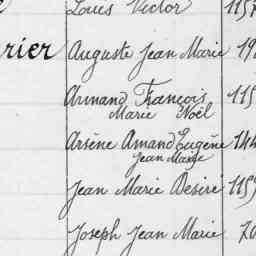 Louis Victor 1157
rier Auguste Jean Marie 19
Armand François 115
Marie Noël
Arsène Amand Eugène 144
Jean Marie
Jean Marie Désiré 1155
Joseph Jean Marie 70